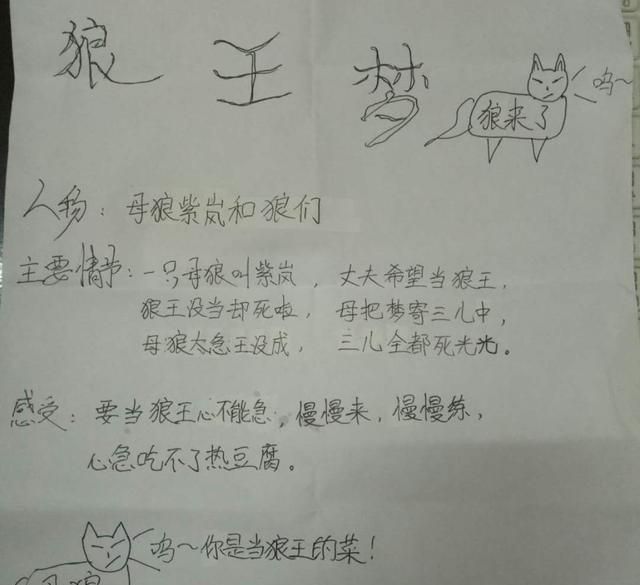 狼王梦
呜~
狼来了
人物：母狼紫岚和狼们
主要情节：一只母狼叫紫岚，丈夫希望当狼王，
狼王没当却死啦，母把梦寄三儿中，
母狼太急王没成，三儿全都死光光。
感受：要当狼王心不能急，慢慢来，慢慢练，
心急吃不了热豆腐。
呜~你是当狼王的菜！